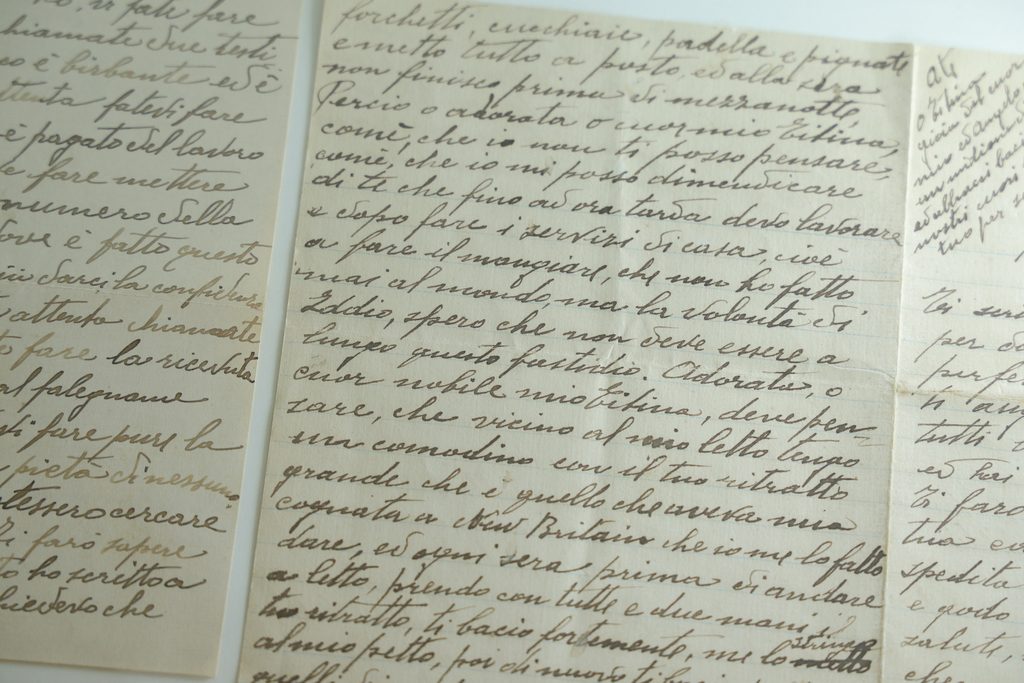 vi fate fare
chiamate due testi
è birbante ed è
attenta fatevi fare
è pagato del lavoro
e fare mettere
numero della
dove è fatto questo
darci la confidenza
attento chiamate
fare la ricevuta
al falegname
fare pure la
pietà di nessuno
potessero cercare
Vi farò sapere
ho scritto a
chiedevo che
forchetti, cucchiaie, padella e pignate
e metto tutto a posto, ed alla sera
non finisco prima di mezzanotte,
Percio o adorata o cuor mio Titina,
comé, che io non ti posso pensare,
comé, che io mi posso dimendicare
di te che fino ad ora tarda devo lavorare
e dopo fare i servizi di casa, cioé
a fare il mangiare, che non ho fatto
mai al mondo ma la volontà di
Iddio, spero che non deve essere a
lungo questo fastidio. Adorata, o
cuor nobile mio Titina, deve pen-
sare, che vicino al mio letto tengo
un comodino con il tuo ritratto
grande che è quello che aveva mia
cognata a New Britain che io me lo fatto
dare, ed ogni sera prima di andare
a letto, prendo con tutte e due mani il
tuo ritratto, ti bacio fortemente, me lo stringo
al mio petto, poi di nuovo ti
A te
o Titina
gioia del cuor
mio ed angelo
un milione di
ed abbracci baci
nostri cuori
tuo per s
Ti
per
perfe
ti
tutti
ed hai
Ti farò
tua
spedita
e godo
salute,
che